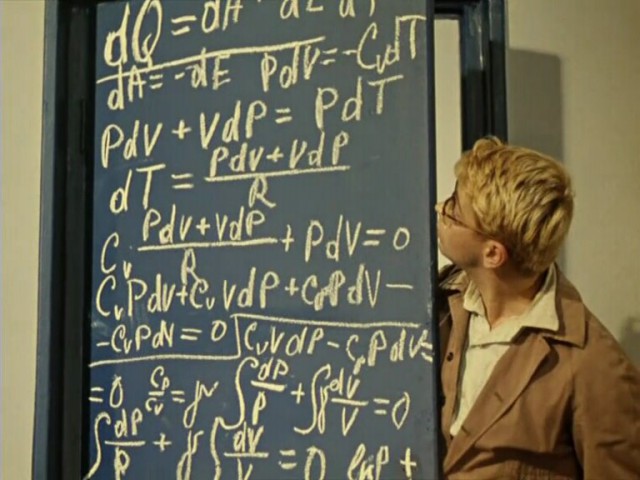 dQ = dA + dE
dA = -dE PdV = -CvdT
PdV + VdP = PdT
dT = PdV+VdP / R
Cv PdV+VdP / R + PdV = 0
CvPdV + CvVdP + CpPdV —
-CvPdV = 0 CvVdP - CpPdV =
= 0 Cp/Cv = γ ∫dP/P + ∫γdV/V = 0
∫dP/P + γ∫dV/V = 0 lnP +